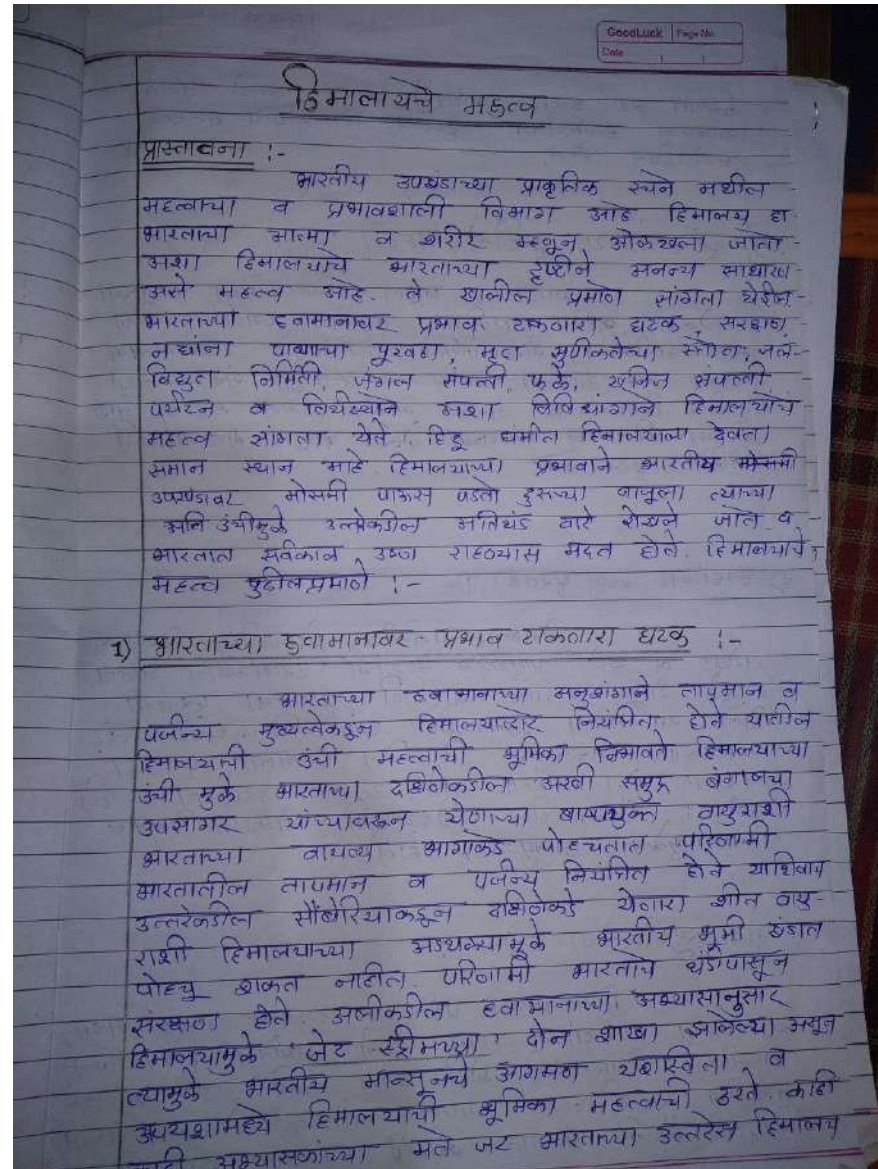 GoodLuck Page No.
Date
हिमालयाचे महत्व
प्रास्तावना :-
भारतीय उपखंडाच्या प्राकृतिक रचने मधील
महत्वाचा व प्रभावशाली विभाग आहे हिमालय हा
भारताचा आत्मा व शरीर म्हणून ओळखला जातो
अशा हिमालयाचे भारताच्या दृष्टीने अनन्य साधारण
असे महत्व आहे. ते खालील प्रमाणे सांगता येईल
भारताच्या हवामानावर प्रभाव टाकणारा घटक, सरक्षण,
नद्यांना पाण्याचा पुरवठा, मृदा सुपीकतेचा स्त्रोत, जल-
विद्युत निर्मिती, जंगल संपत्ती, फळे, खनिज संपत्ती
पर्यटन व तिर्थस्थाने अशा विविधांगाने हिमालयाचे
महत्व सांगता येते. हिंदू धर्मात हिमालयाला देवता
समान स्थान आहे हिमालयाच्या प्रभावाने भारतीय
उपखंडावर मोसमी पाऊस पडतो दुसऱ्या बाजूला त्याच्या
अति उंचीमुळे उत्तरेकडील अतिथंड वारे रोखले जाते व
भारतात सर्वकाळ उष्ण राहण्यास मदत होते. हिमालयाचे
महत्व पुढीलप्रमाणे :-
1) भारताच्या हवामानावर प्रभाव टाकणारा घटक :-
भारताच्या हवामानाच्या अनुषंगाने तापमान व
पर्जन्य मुख्यत्वेकडून हिमालयाद्वारे नियंत्रित होते यातील
हिमालयाची उंची महत्वाची भूमिका निभावते हिमालयाच्या
उंची मुळे भारताच्या दक्षिणेकडील अरबी समुद्र बंगालचा
उपसागर यांच्यावरून येणाऱ्या बाष्पयुक्त वायुराशी
भारताच्या वायव्य भागाकडे पोहचतात परिणामी
भारतातील तापमान व पर्जन्य नियंत्रित होते याशिवाय
उत्तरेकडील सौबेरियाकडून दक्षिणेकडे येणारा शीत वायु-
राशी हिमालयाच्या अडथळ्यामूळे भारतीय भूमी खंडात
पोहचू शकत नाहीत परिणामी भारताचे थंडीपासून
संरक्षण होते अलीकडील हवामानाच्या अभ्यासानुसार
हिमालयामुळे 'जेट स्ट्रीमच्या' दोन शाखा झालेल्या असून
त्यामुळे भारतीय मान्सूनचे आगमण यशस्विता व
अपयशामध्ये हिमालयाची भूमिका महत्वाची ठरते काही
अभ्यासकांच्या मते जर भारताच्या उत्तरेस हिमालय